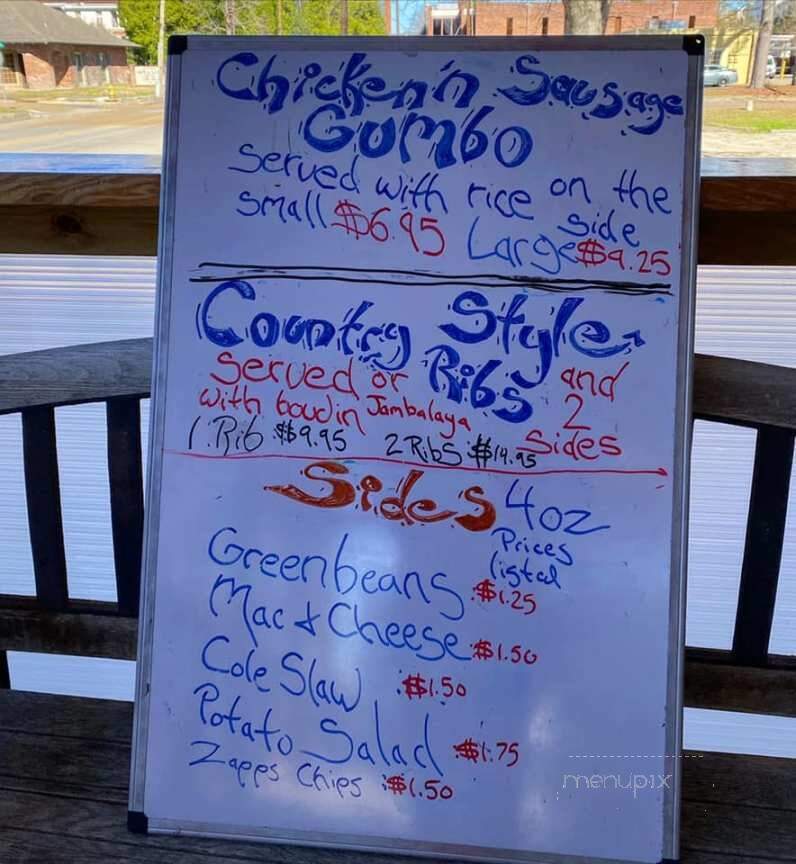 Chicken'n Sausage
Gumbo
Served with rice on the side
Small $6.95 Large $9.25
Country Style Ribs
Served with boudin or Jambalaya and 2 sides
1 Rib $9.95 2 Ribs $14.95
Sides 4oz
Prices listed
Greenbeans $1.25
Mac & Cheese $1.50
Cole Slaw $1.50
Potato Salad $1.75
Zapps Chips $1.50
menupix